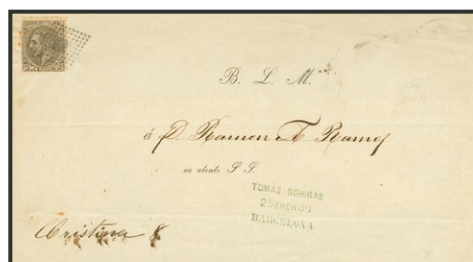 B. L. M.
á D. Ramon A. Ramoz
su atento S. S.
TOMÁS ROHIGAS
25 ENE
BARCELONA
Cristina 8